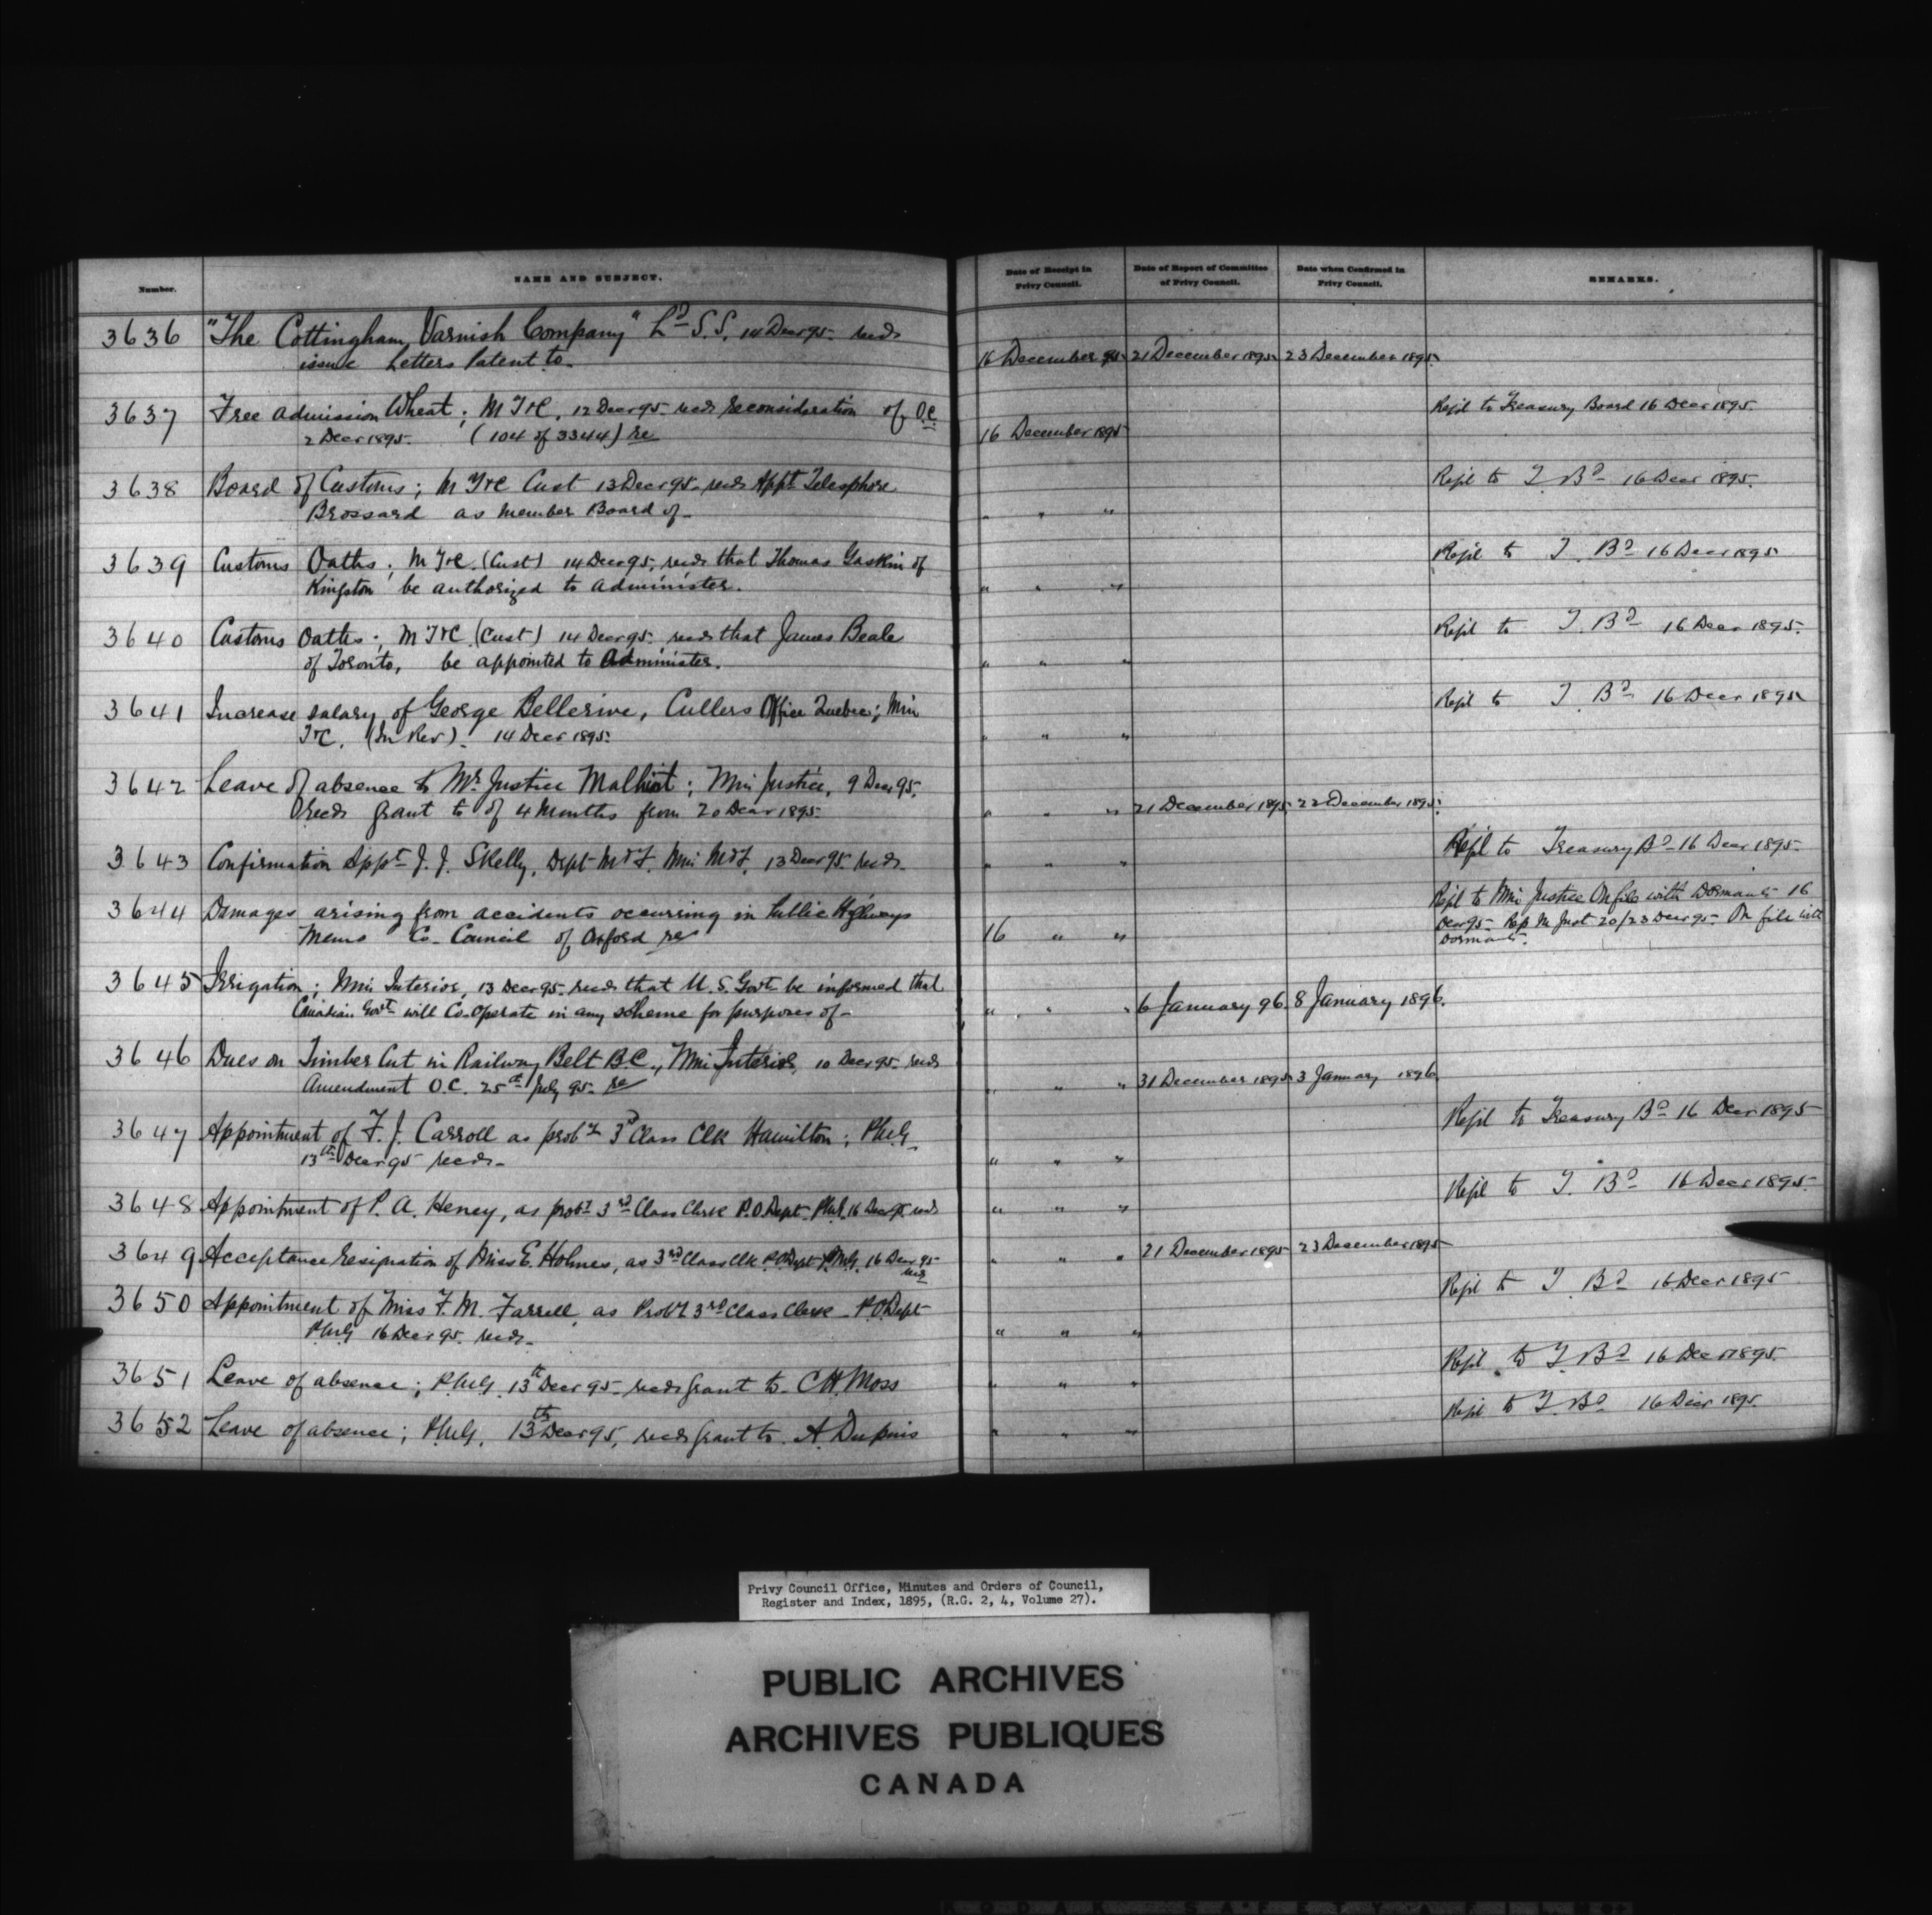 Number.
NAME AND SUBJECT.
Date of Receipt in Privy Council.
Date of Report of Committee of Privy Council.
Date when Confirmed in Privy Council.
REMARKS.
3636 "The Cottingham Varnish Company" Ld S.S. 14 Decr 95 recds
issue Letters Patent to 16 December 95 21 December 1895 23 December 1895
3637 Free admission Wheat; M T&C. 12 Decr 95 recds reconsideration of O.C. Refd to Treasury Board 16 Decr 1895.
2 Decr 1895. (104 of 3344) re 16 December 1895
3638 Board of Customs; M T&C Cust 13 Decr 95 recds Appt Telesphore Refd to T. Bd 16 Decr 1895.
Brossard as member Board of " " "
3639 Customs Oaths; M T&C. (Cust) 14 Decr 95, recds that Thomas Gaskin of Refd to T. Bd 16 Decr 1895
Kingston be authorized to administer. " " "
3640 Customs Oaths; M T&C. (Cust) 14 Decr 95. recds that James Beale Refd to T. Bd 16 Decr 1895.
of Toronto, be appointed to Administer. " " "
3641 Increase salary of George Bellerive, Cullers Office Quebec; Min Refd to T. Bd 16 Decr 1895
T&C. (In Rev). 14 Decr 1895. " " "
3642 Leave of absence to Mr Justice Malhiot; Min Justice, 9 Decr 95.
recds grant to of 4 Months from 20 Decr 1895. " " " 21 December 1895 22 December 1895.
3643 Confirmation Appt J. J. Skelly, Dept M&F. Min M&F. 13 Decr 95 recds. " " " Refd to Treasury Bd 16 Decr 1895.
3644 Damages arising from accidents occurring in Public Highways Refd to Min Justice On file with Dormants 16
Mems Co. Council of Oxford re 16 " " Decr 95 Rep M Just 20/23 Decr 95 On file with
Dormants.
3645 Irrigation; Min Interior, 13 Decr 95. recds that U.S. Govt be informed that
Canadian Govt will Co-operate in any scheme for purposes of " " " 6 January 96. 8 January 1896.
3646 Dues on Timber Cut in Railway Belt B.C., Min Interior, 10 Decr 95 recds
Amendment O.C. 25th July 95 re " " " 31 December 1895 3 January 1896
3647 Appointment of F. J. Carroll as proby 3d Class Clk Hamilton; P.M.G. Refd to Treasury Bd 16 Decr 1895
13th Decr 95 recds. " " "
3648 Appointment of P. A. Heney, as proby 3rd Class Clerk P.O. Dept. P.M.G. 16 Decr 95 recds " " " Refd to T. Bd 16 Decr 1895.
3649 Acceptance resignation of Miss E. Holmes, as 3rd Class Clk P.O. Dept P.M.G. 16 Decr 95 " " " 21 December 1895 23 December 1895
recds
3650 Appointment of Miss F. M. Farrell, as Proby 3rd Class Clerk P.O. Dept Refd to T. Bd 16 Decr 1895
P.M.G. 16 Decr 95 recds. " " "
3651 Leave of absence; P.M.G. 13th Decr 95 recds grant to C H. Moss " " " Refd to T Bd 16 Decr 1895
3652 Leave of absence; P.M.G. 13th Decr 95, recds grant to A. Dupuis " " " Refd to T. Bd 16 Decr 1895
Privy Council Office, Minutes and Orders of Council,
Register and Index, 1895, (R.G. 2, 4, Volume 27).
PUBLIC ARCHIVES
ARCHIVES PUBLIQUES
CANADA